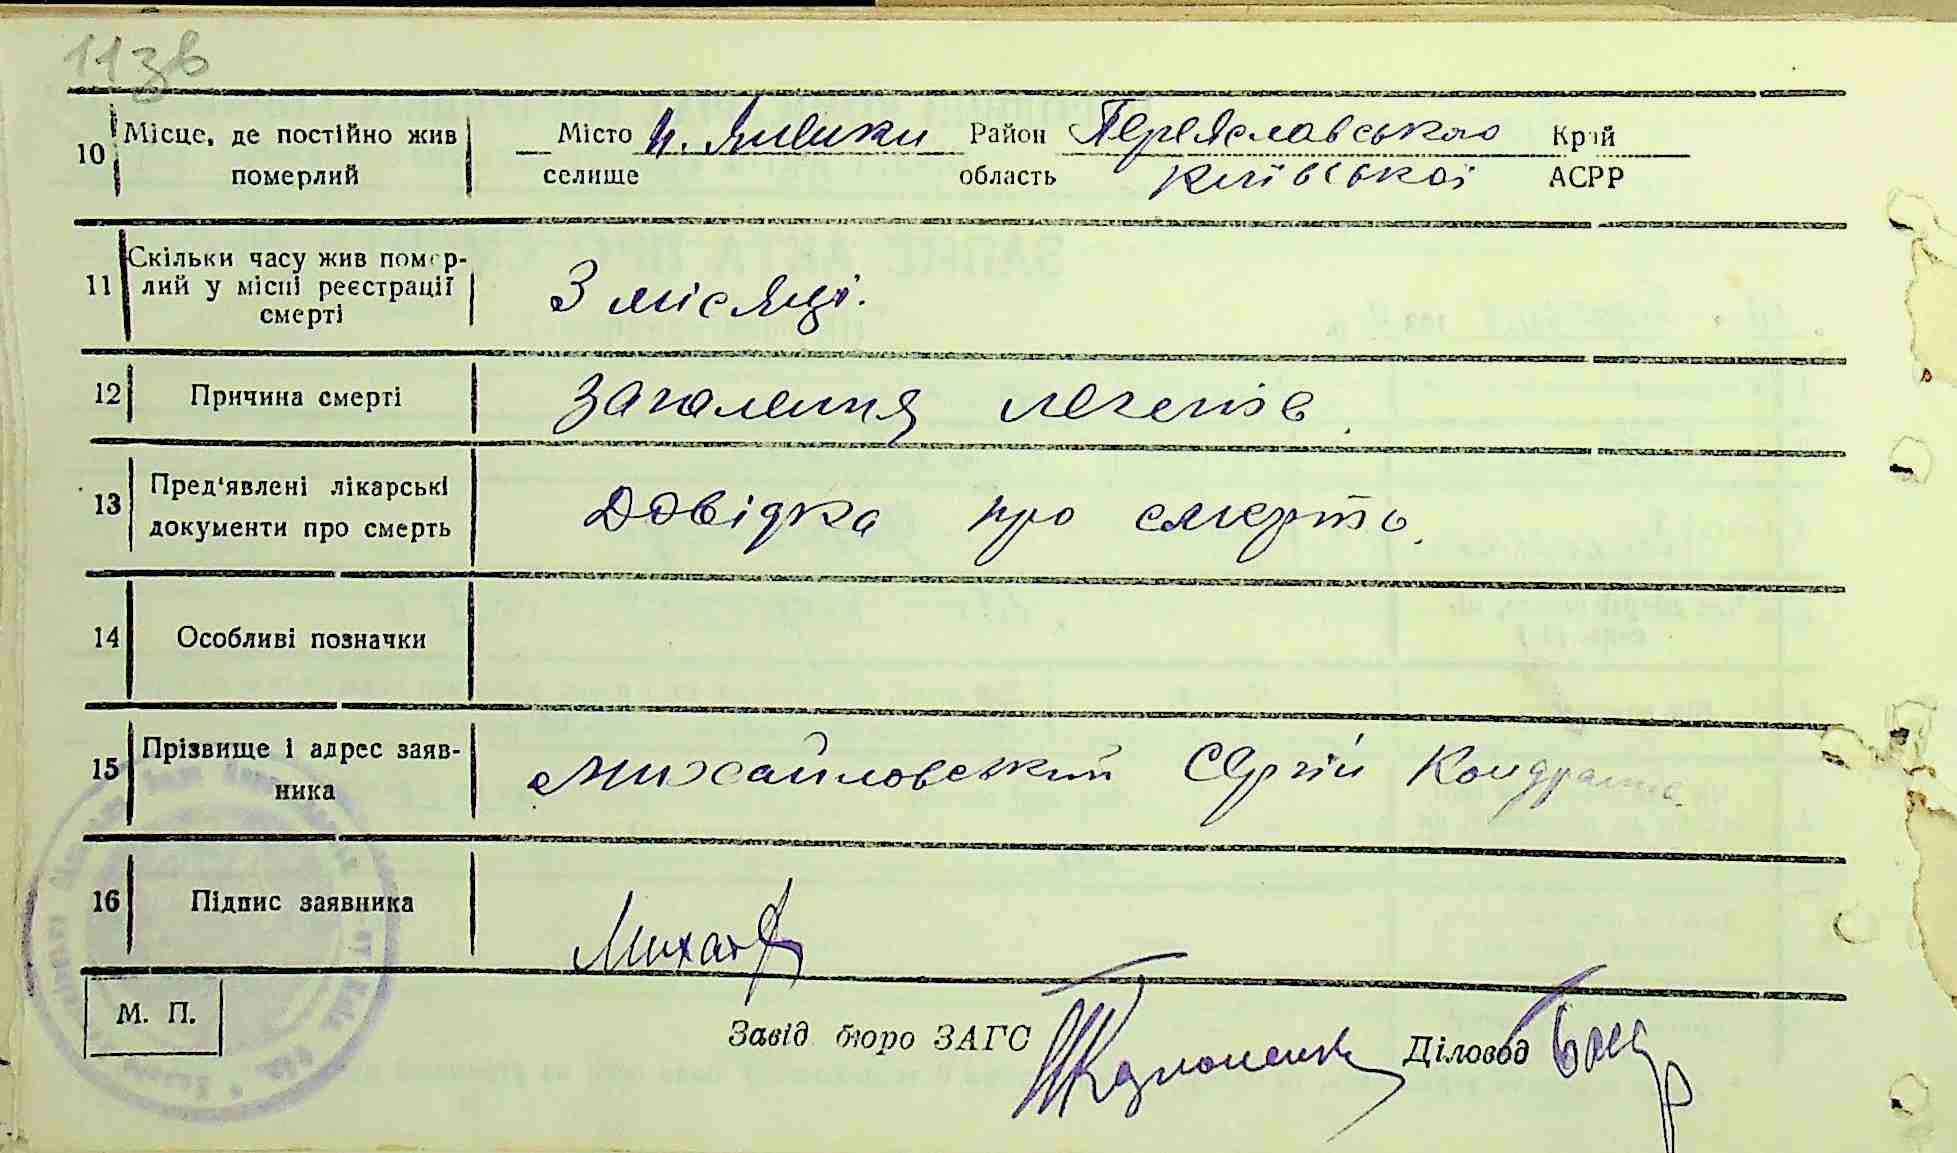 113в
10 Місце, де постійно жив померлий Місто Район Переяславського Край
селище область Київської АСРР
11 Скільки часу жив помер-
лий у місці реєстрації
смерті
3 місяці.
12 Причина смерті Запалення легенів.
13 Пред'явлені лікарські
документи про смерть
Довідка про смерть.
14 Особливі позначки
15 Прізвище і адрес заяв-
ника
Михайловський Сергій
16 Підпис заявника
М. П.
Завід бюро ЗАГС Діловод